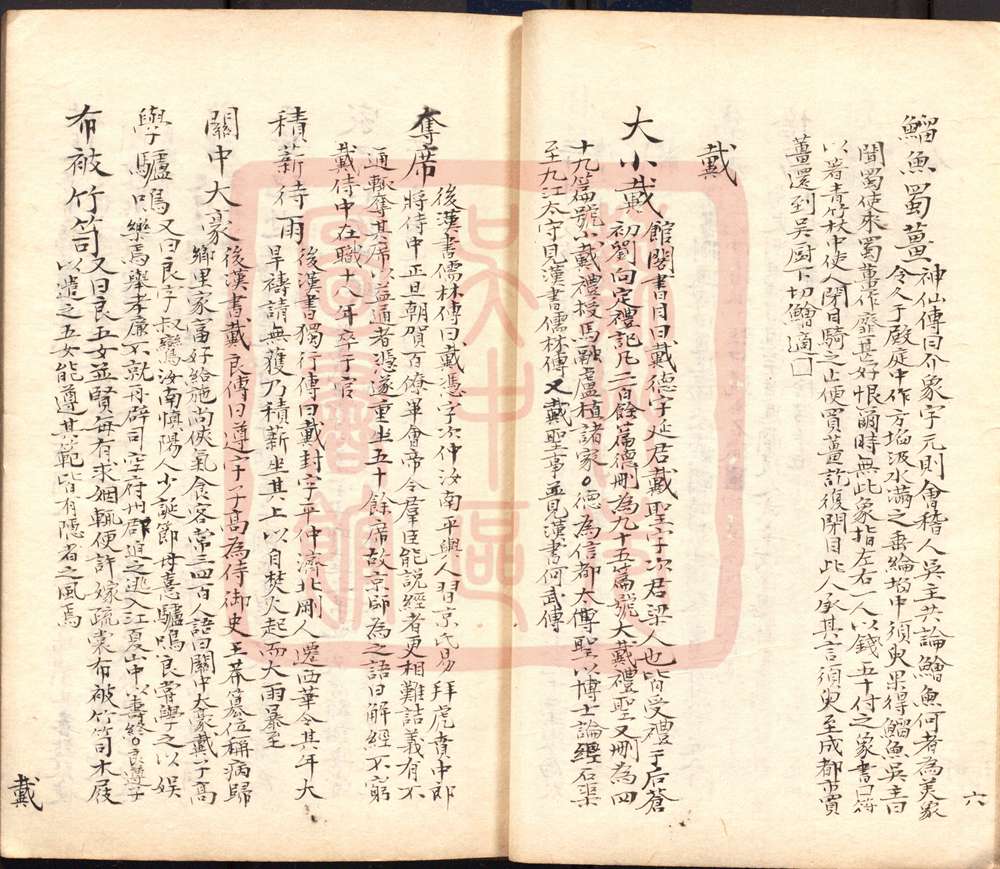 鯔魚蜀薑 神仙傳曰介象字元則會稽人吳主共論鱠魚何者為美象
令人于殿庭中作方埳汲水滿之垂綸埳中須臾果得鯔魚吳主曰
聞蜀使來蜀薑作虀甚好恨爾時無此象指左右一人以錢五十付之象書口符
以著青竹杖中使人閉目騎之止便買薑訖復閉目此人承其言須臾至成都市買
薑還到吳厨下切鱠適□
六
戴
大小戴 館閣書目曰戴德字延君戴聖字次君梁人也皆受禮于后蒼
初劉向定禮記凡二百餘篇德刪為八十五篇號大戴禮聖又刪為四
十九篇號小戴禮授馬融盧植諸家。德為信都太傅聖以博士論經石渠
至九江太守見漢書儒林傳又戴聖事並見漢書何武傳
奪席 後漢書儒林傳曰戴憑字次仲汝南平輿人習京氏易拜虎賁中郎
將侍中正旦朝賀百僚畢會帝令羣臣能說經者更相難詰義有不
通輒奪其席以益通者憑遂重坐五十餘席故京師為之語曰解經不窮
戴侍中在職十八年卒于官
積薪待雨 後漢書獨行傳曰戴封字平仲濟北剛人遷西華令其年大
旱禱請無獲乃積薪坐其上以自焚火起而大雨暴至
關中大豪 後漢書戴良傳曰遵字子高為侍御史王莽篡位稱病歸
鄉里家富好給施尚俠氣食客常三四百人語曰關中大豪戴子高
學驢鳴 又曰良字叔鸞汝南慎陽人少誕節母憙驢鳴良嘗學之以娱
樂焉舉孝廉不就再辟司空府州郡迫之逃入江夏山中以壽終。良遵子
布被竹笥 又曰良五女並賢每有求姻輒便許嫁疏裳布被竹笥木屐
以遣之五女能遵其範皆有隱者之風焉
戴